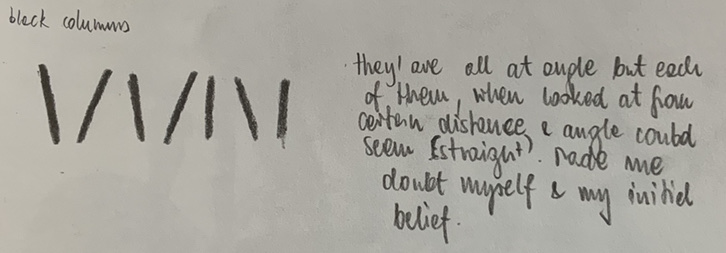 black columns
they' are all at angle but each
of them, when looked at from
certain distance & angle could
seem (straight). Made me
doubt myself & my initial
belief.